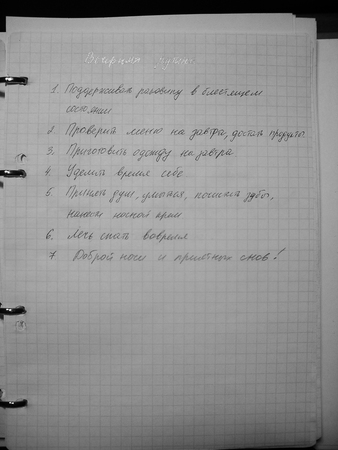 Вечерняя рутина
1. Поддерживать раковину в блестящем
состоянии
2. Проверить меню на завтра, достать продукты
3. Приготовить одежду на завтра
4. Уделить время себе
5. Принять душ, умыться, почистить зубы,
нанести ночной крем
6. Лечь спать вовремя
7. Доброй ночи и приятных снов!